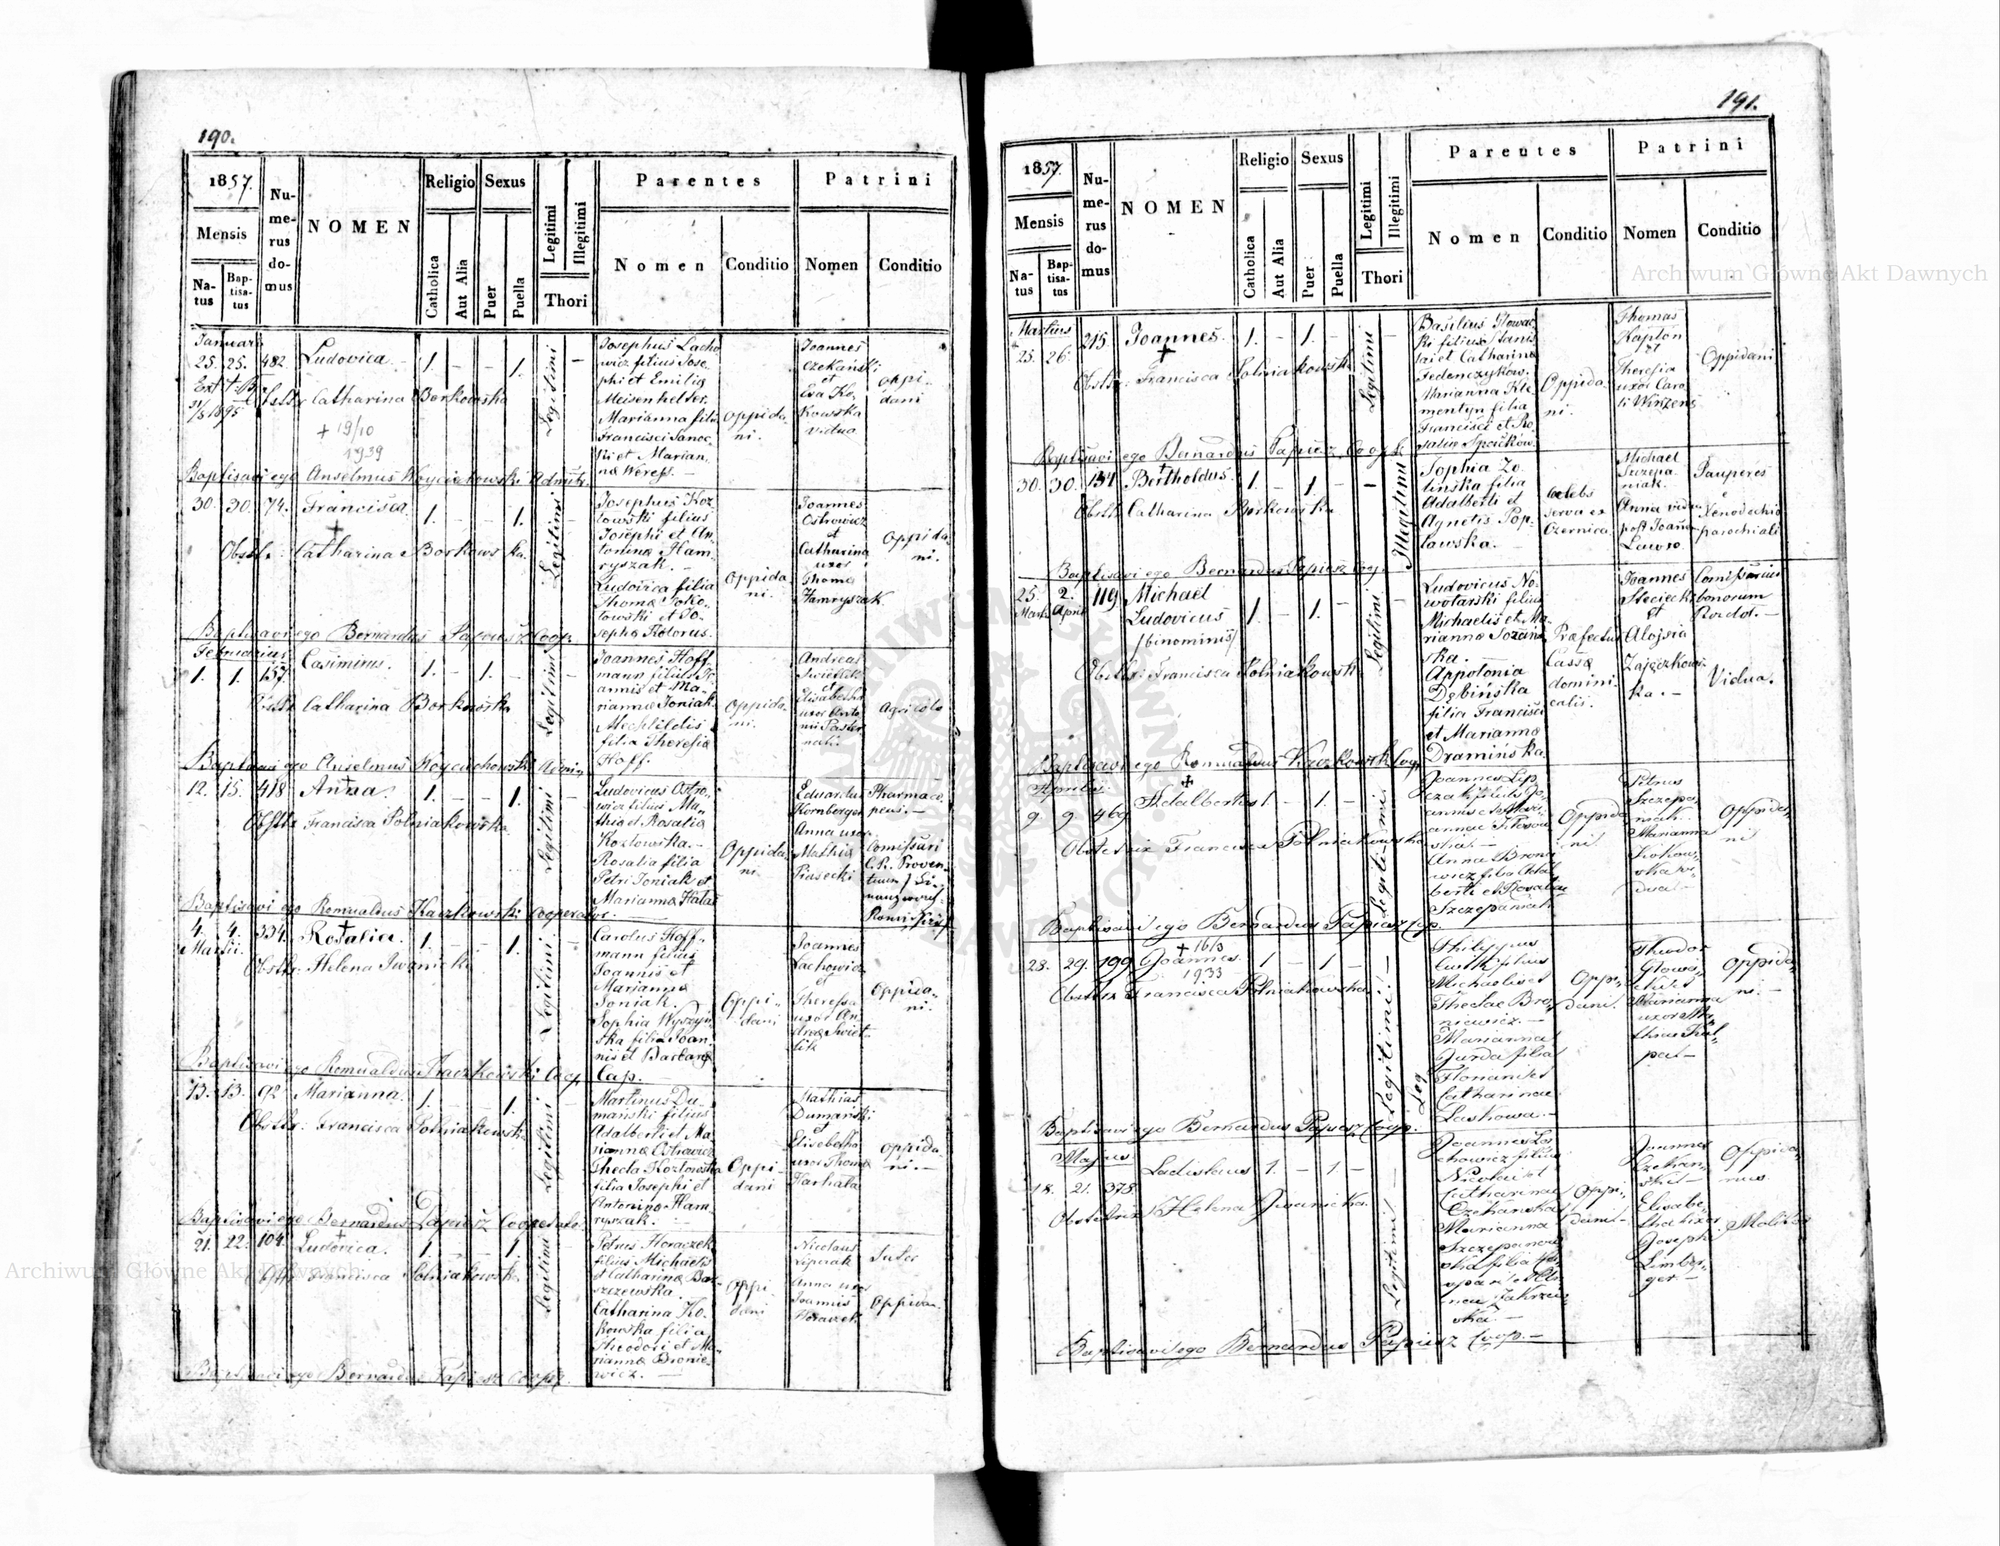 190.
1857.
Mensis
Na-
tus
Bap-
tisa-
tus
Nu-
me-
rus
do-
mus
NOMEN
Religio
Catholica
Aut Alia
Sexus
Puer
Puella
Legitimi
Illegitimi
Thori
Parentes
Nomen
Conditio
Patrini
Nomen
Conditio
Januari
25. 25. 482 Ludovica. 1. - - 1. Legitimi -
Obstr. Catharina Borkowska
31/8 1895
+ 19/10
1939
Josephus Lacho
wicz filius Jose-
phi et Emilia
Meisenhelter.
Marianna filia
Francisci Sanoc-
ki et Marian-
na
Oppida-
ni.
Joannes
Czekański
et
Eva Ko-
kowska
vidua
oppi-
dani
Baptisavi ego Anselmus Woyciechowski Admstr.
30. 30. 74. Francisca. 1. - - 1. Legitimi
Obstr: Catharina Borkowska
Josephus Koz
łowski filius
Josephi et An-
tonina Ham-
ryszak. -
Ludovica filia
Thoma Soko-
łowski et Jo-
sepha Kotorus.
Oppida
ni.
Joannes
Ostrowicz
et
Catharina
uxor
Thoma
Hamryszak
Oppida
ni.
Baptisavi ego Bernardus Papiesz Coop.
Februarius
1. 1. 157. Casimirus. 1. - 1. - Legitimi
Obstr Catharina Borkowska
Joannes Hoff-
mann filius Jo-
annis et Ma-
rianna Joniak
Mechtildis
filia Theresia
Hoff.
Oppida-
ni.
Andreas
Swietlik
et
Elisabetha
uxor Anto
nii Paster
nak.
Agricola
Baptisavi ego Anselmus Woyciechowski Admin
12. 15. 418 Anna 1. - - 1. Legitimi
Obstr Francisca Polniakowska
Ludovicus Ostro-
wicz filius Ma-
thia et Rosalia
Kozłowska. -
Rosalia filia
Petri Joniak et
Marianna Hałas
Oppida-
ni.
Eduardus
Kornberger
Anna uxor
Mathia
Piasecki
Pharmaco
peus. -
Comissari
C.R. Proven-
tuum
Baptisavi ego Romualdus Kaczkowski Cooperator.
4. 4. 334. Rosalia. 1. - - 1. Legitimi
Martii.
Obstr: Helena Iwanicka
Carolus Hoff-
mann filius
Joannis et
Marianna
Joniak.
Sophia Wyszyń-
ska filia Joan-
nis et Barbara
Cap. -
Oppi-
dani
Joannes
Lachowicz
et
Theressa
uxor An-
drea Swiet-
lik
Oppida-
ni.
Baptisavi ego Romualdus Kaczkowski Coop
13. 13. 92 Marianna. 1. - - 1. Legitimi
Obstr: Francisca Polniakowska
Martinus Du-
mański filius
Adalberti et Ma-
rianna Ostrowicz
Thecla Kozłowska
filia Josephi et
Antonina Ham-
ryszak. -
Oppi-
dani
Mathias
Dumański
et
Elisabetha
uxor Thoma
Oppida-
ni. -
Baptisavi ego Bernardus Papiesz Cooperator.
21. 22. 104. Ludovica. 1. - - 1. Legitimi
Obstr Francisca Polniakowska
Petrus Horaczek
filius Michaelis
et Catharina Ba-
szczewska.
Catharina Ko-
kowska filia
Theodori et Ma-
rianna Bronie-
wicz. -
Oppi-
dani
Nicolaus
Lipczak
Anna uxor
Joannis
Horaczek
Sutor
Oppidan-
Baptisavi ego Bernardus Papiesz Coop.
191.
1857.
Mensis
Na-
tus
Bap-
tisa-
tus
Nu-
me-
rus
do-
mus
NOMEN
Religio
Catholica
Aut Alia
Sexus
Puer
Puella
Legitimi
Illegitimi
Thori
Parentes
Nomen
Conditio
Patrini
Nomen
Conditio
Martius
25. 26. 215 Joannes. 1. - 1. - Legitimi
Obstr: Francisca Polniakowska
Basilius Głowac
ki filius Stanis
lai et Catharina
Fedenczykow.
Marianna Kle
mentyn filia
Francisci et Ro
salia
Oppida
ni.
Thomas
Kapton
et
Theresia
uxor Caro
li
Oppidani
Baptisavi ego Bernardus Papiesz Coop.
30. 30. 154 Bertholdus. 1. - 1. - Illegitimi
Obstr Catharina Borkowska
Sophia Zo
lińska filia
Adalberti et
Agnetis Pop-
ławska. -
Caelebs
serva ex
Czernica
Michael
Szczepa
niak.
Anna vidua
post Joann
Lawro
Pauperes
e
Xenodochio
parochiali
Baptisavi ego Bernardus Papiesz Coop.
25. 2. 119. Michael 1. - 1. - Legitimi
Mart. April
Ludovicus
/binominis/
Obstr: Francisca Polniakowska
Ludovicus No-
wotarski filius
Michaelis et Ma-
rianna Sozań-
ska. -
Appolonia
Dębińska
filia Francisci
et Marianna
Dramińska.
Præfectus
Cassa
domini-
calis.
Joannes
Stecieck
et
Aloysia
Zajączkow-
ska. -
Comissarius
bonorum
Rozdoł. -
Vidua.
Baptisavi ego Romualdus Kaczkowski Coop
Aprilis
9 9 469 Adalbertus 1. - 1. - Legitimi
Obstetrix Francisca Polniakowska
Joannes Lip-
czak filius Jo-
annis et Mari-
annae
Anna Bronie
wicz filia Adal
berti et Rosaliae
Szczepaniak
Oppida
ni
Petrus
Szczepa-
niak
Marianna
Kokow-
ska vi-
dua -
Oppida-
ni
Baptisavi ego Bernardus Papiesz Cop.
+ 16/3
28. 29. 199 Joannes. 1 - 1 - Legitimi
1933
Obstetrix Francisca Polniakowska
Philippus
filius
Michaelis et
Theclae Bro-
niewicz. -
Marianna
Gurda filia
Floriani et
Catharinae
Laskowa. -
Oppi-
dani.
Theodor
Głowa-
cki et
Marianna
uxor Ma-
thiae
Oppida-
ni. -
Leg
Baptisavi ego Bernardus Papiesz Coop.
Majus
18. 21. 373. Ladislaus 1. - 1 - Legitimi
Obstetrix Helena Iwanicka
Joannes La-
chowicz filius
Nicolai et
Catharinae
Czekańska
Marianna
Szczepanow-
ska filia
Oppi-
dani. -
Joannes
Czekań-
ski -
Elisabe-
tha uxor
Josephi
Limber-
ger -
Oppida-
nus
Baptisavi ego Bernardus Papiesz Coop. -
Archiwum Główne Akt Dawnych
Archiwum Główne Akt Dawnych
ARCHIWUM GŁÓWNE AKT DAWNYCH